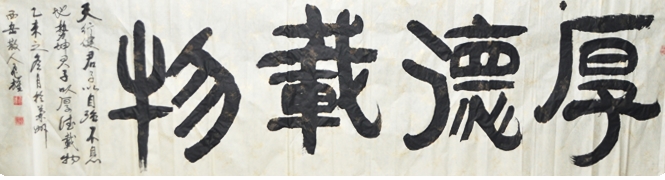 厚德載物
天行健君子以自强不息
地势坤君子以厚德載物
乙未之
西岳散人